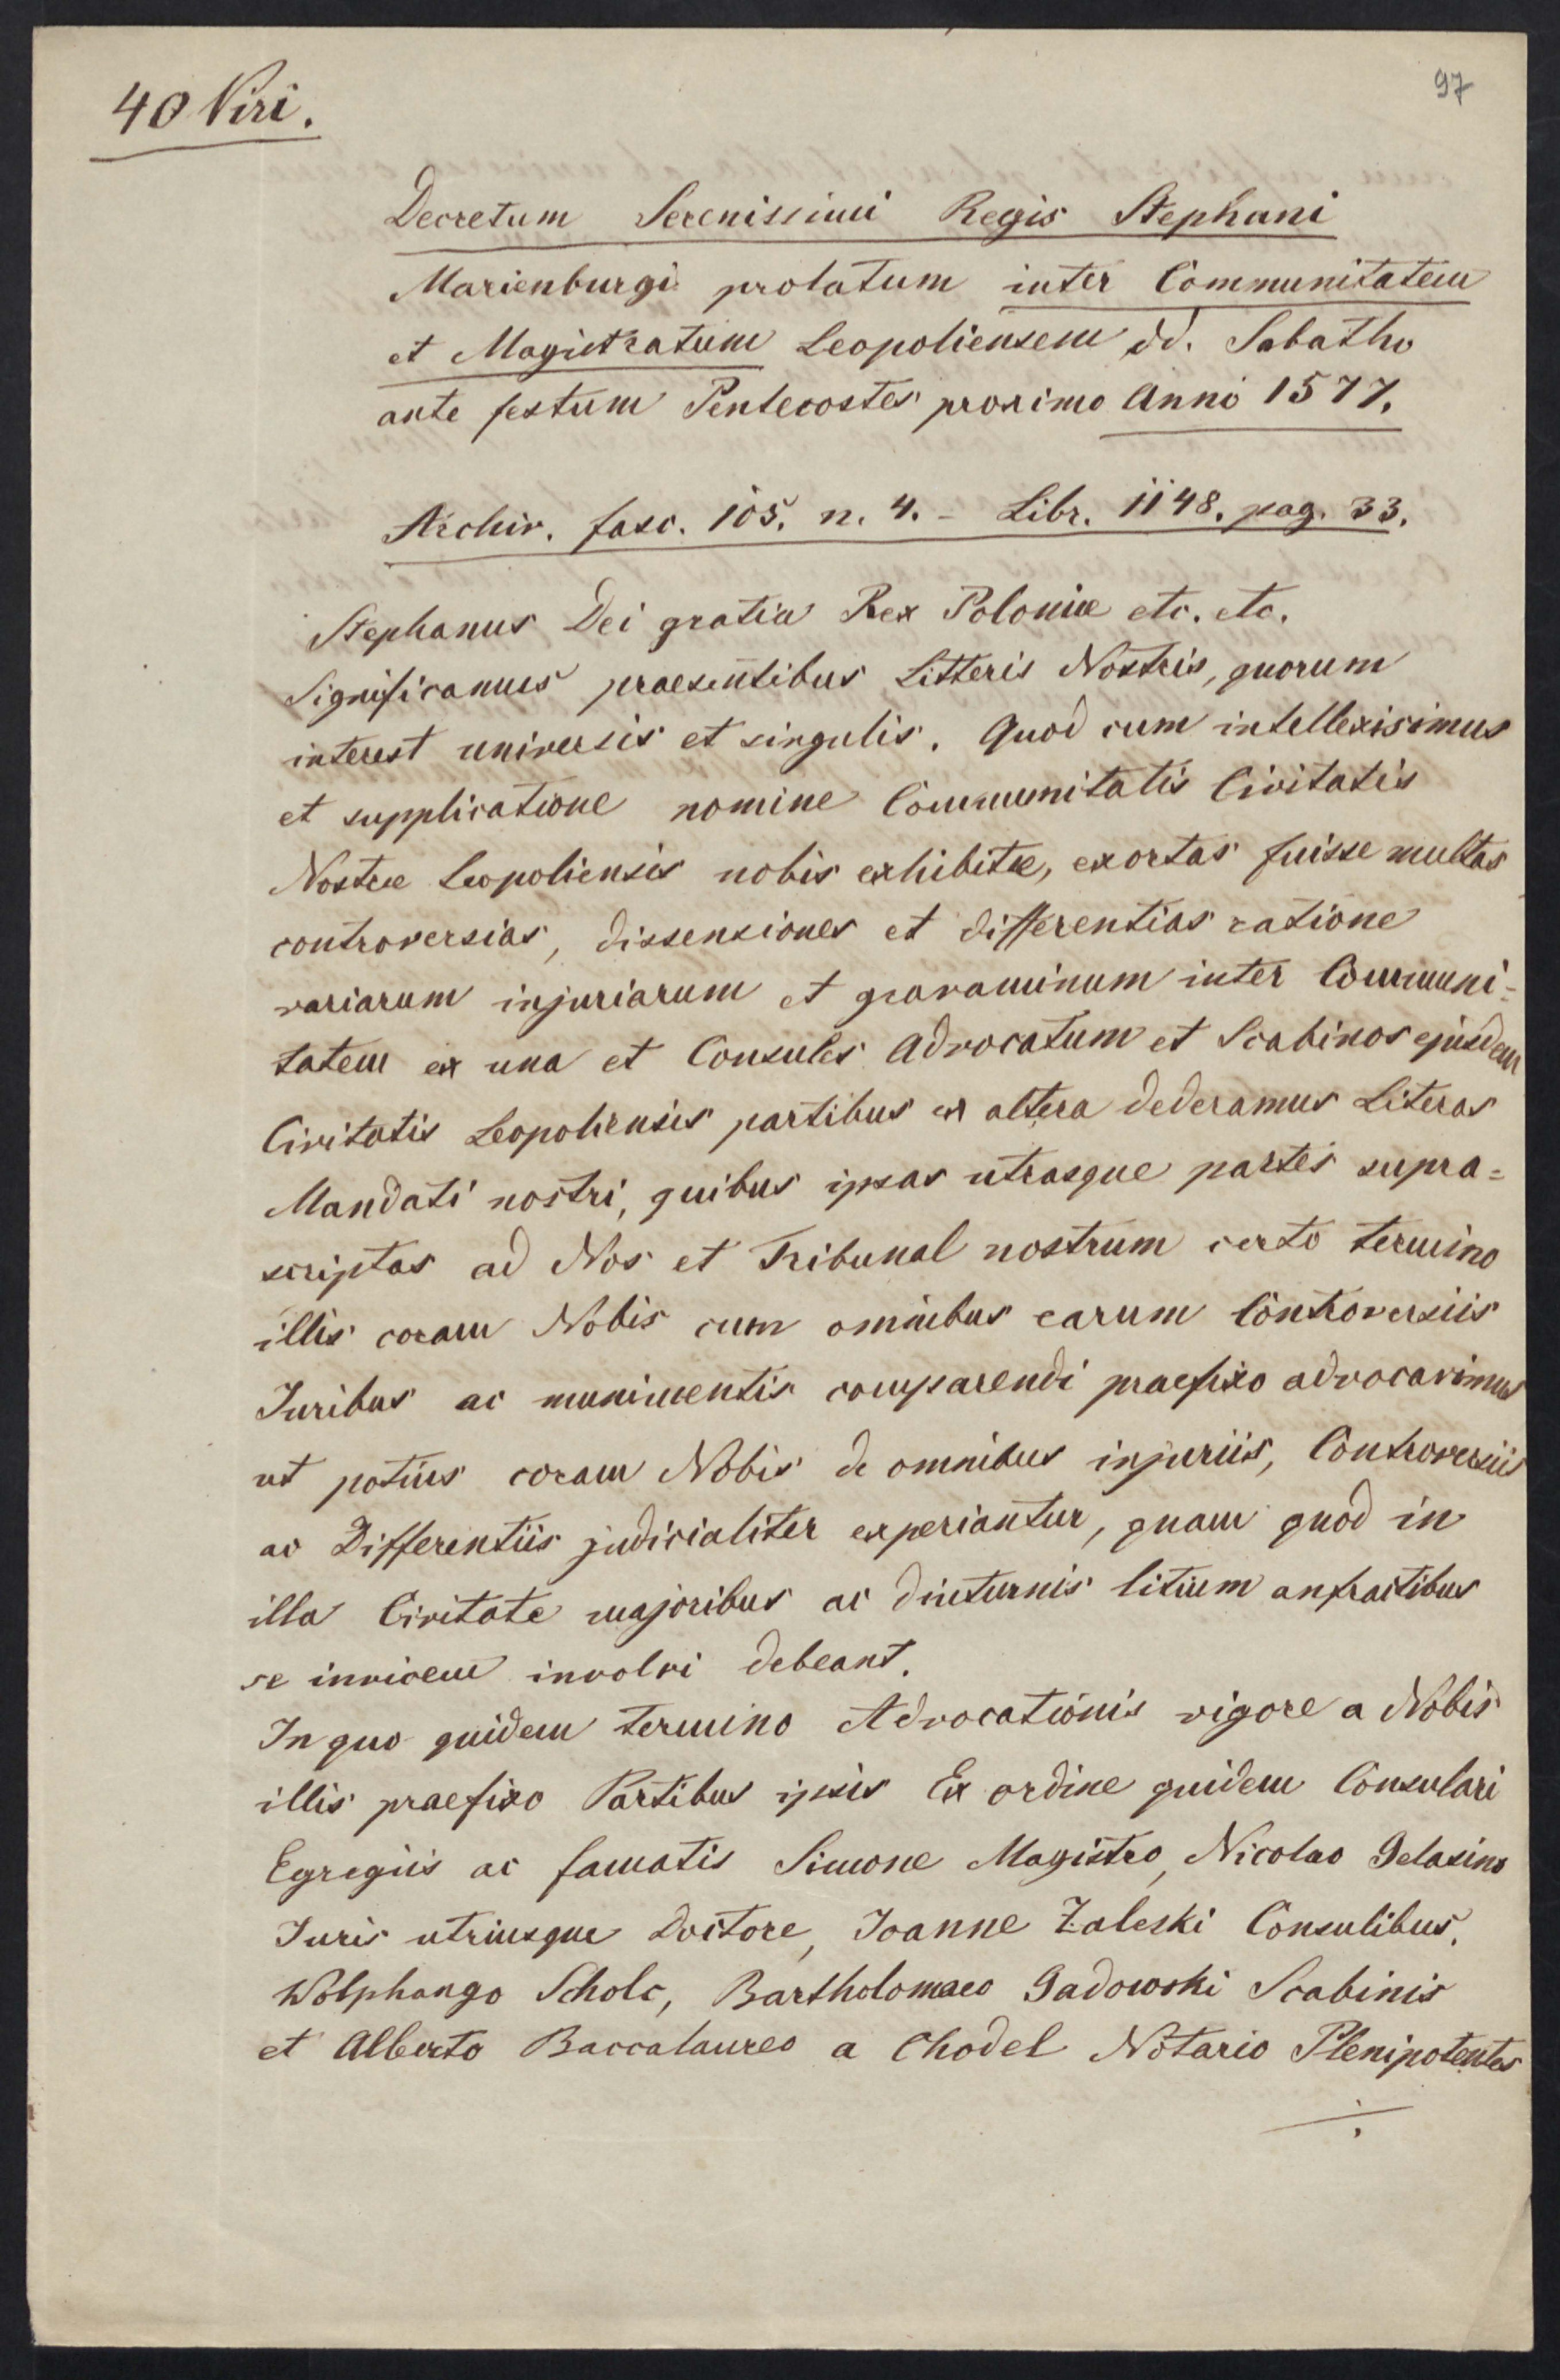 40 Viri.
97
Decretum Serenissimi Regis Stephani
Marienburgi prolatum inter Communitatem
et Magistratum Leopoliensem dd. Sabatho
ante festum Pentecostes proximo Anni 1577.
Archiv. fasc. 105. n. 4. - Libr. 1148. pag. 33.
Stephanus Dei gratia Rex Poloniæ etc. etc.
Significamus praesentibus Litteris Nostris, quorum
interest universis et singulis. Quod cum intellexisimus
et supplicatione nomine Communitatis Civitatis
Nostræ Leopoliensis nobis exhibitæ, exortas fuisse multas
controversias, dissensiones et differentias ratione
variarum injuriarum et gravaminum inter Communi=
tatem ex una et Consules Advocatum et Scabinos ejusdem
Civitatis Leopoliensis partibus ex altera dederamus Literas
Mandati nostri, quibus ipsas utrasque partes supra=
scriptas ad Nos et Tribunal nostrum certo termino
illis coram Nobis cum omnibus earum Controversiis
Juribus ac munimentis comparendi praefixo advocavimus
ut potius coram Nobis de omnibus injuriis, Controversiis
ac Differentiis judicialiter experiantur, quam quod in
illa Civitate majoribus ac diuturnis litium anfractibus
se invicem involvi debeant.
In quo quidem termino Advocationis vigore a Nobis
illis praefixo Partibus ipsis Ex ordine quidem Consulari
Egregiis ac famatis Simone Magistro, Nicolao Gelasino
Juris utriusque Doctore, Joanne Zaleski Consulibus,
Wolphango Scholc, Bartholomaeo Gadowski Scabinis
et Alberto Baccalaureo a Chodel Notario Plenipotentes
÷